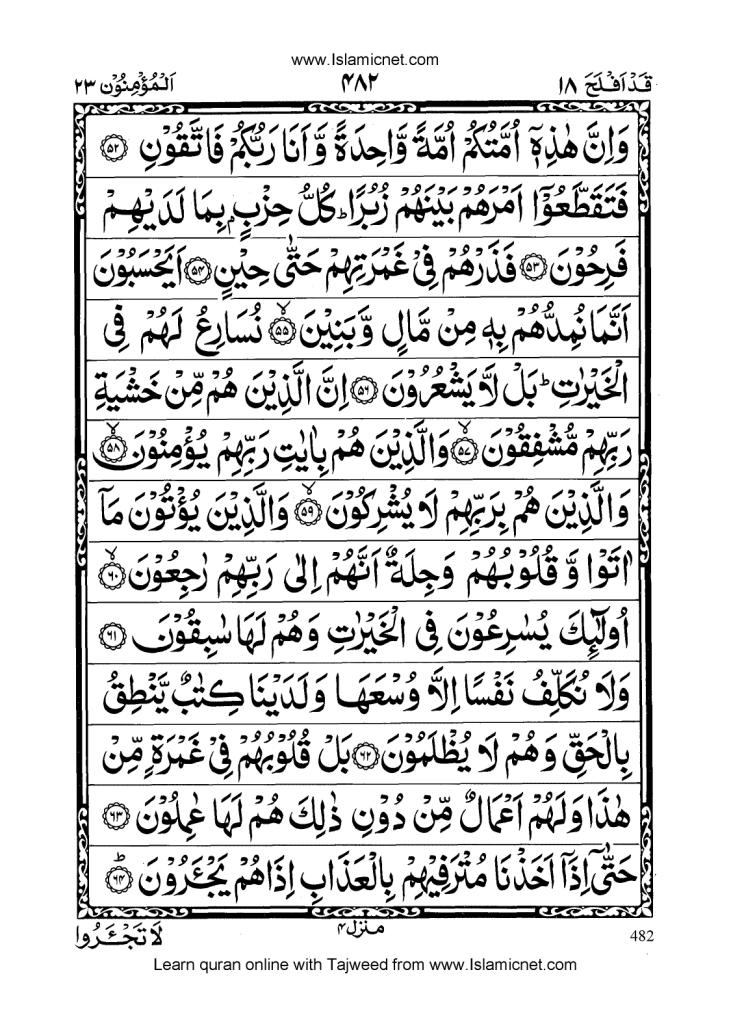 www.Islamicnet.com
قَدْ اَفْلَحَ ١٨ ۴٨٢ اَلْمُؤْمِنُوْن ٢٣
وَاِنَّ هٰذِهٖۤ اُمَّتُكُمْ اُمَّةً وَّاحِدَةً وَّاَنَا رَبُّكُمْ فَاتَّقُوْنِ ﴿۵۲﴾
فَتَقَطَّعُوْۤا اَمْرَهُمْ بَيْنَهُمْ زُبُرًا ؕ كُلُّ حِزْبٍۭ بِمَا لَدَيْهِمْ
فَرِحُوْنَ ﴿۵۳﴾ فَذَرْهُمْ فِيْ غَمْرَتِهِمْ حَتّٰى حِيْنٍ ﴿۵۴﴾ اَيَحْسَبُوْنَ
اَنَّمَا نُمِدُّهُمْ بِهٖ مِنْ مَّالٍ وَّبَنِيْنَ ﴿۵۵﴾ۙ نُسَارِعُ لَهُمْ فِي
الْخَيْرٰتِ ؕ بَلْ لَّا يَشْعُرُوْنَ ﴿۵۶﴾ اِنَّ الَّذِيْنَ هُمْ مِّنْ خَشْيَةِ
رَبِّهِمْ مُّشْفِقُوْنَ ﴿۵۷﴾ۙ وَالَّذِيْنَ هُمْ بِاٰيٰتِ رَبِّهِمْ يُؤْمِنُوْنَ ﴿۵۸﴾ۙ
وَالَّذِيْنَ هُمْ بِرَبِّهِمْ لَا يُشْرِكُوْنَ ﴿۵۹﴾ۙ وَالَّذِيْنَ يُؤْتُوْنَ مَاۤ
اٰتَوْا وَّقُلُوْبُهُمْ وَجِلَةٌ اَنَّهُمْ اِلٰى رَبِّهِمْ رٰجِعُوْنَ ﴿۶۰﴾ۙ
اُولٰٓئِكَ يُسٰرِعُوْنَ فِي الْخَيْرٰتِ وَهُمْ لَهَا سٰبِقُوْنَ ﴿۶۱﴾
وَلَا نُكَلِّفُ نَفْسًا اِلَّا وُسْعَهَا وَلَدَيْنَا كِتٰبٌ يَّنْطِقُ
بِالْحَقِّ وَهُمْ لَا يُظْلَمُوْنَ ﴿۶۲﴾ بَلْ قُلُوْبُهُمْ فِيْ غَمْرَةٍ مِّنْ
هٰذَا وَلَهُمْ اَعْمَالٌ مِّنْ دُوْنِ ذٰلِكَ هُمْ لَهَا عٰمِلُوْنَ ﴿۶۳﴾
حَتّٰۤى اِذَاۤ اَخَذْنَا مُتْرَفِيْهِمْ بِالْعَذَابِ اِذَا هُمْ يَجْـَٔرُوْنَ ﴿۶۴﴾ؕ
لَا تَجْـَٔرُوا منزل ۴ 482
Learn quran online with Tajweed from www.Islamicnet.com